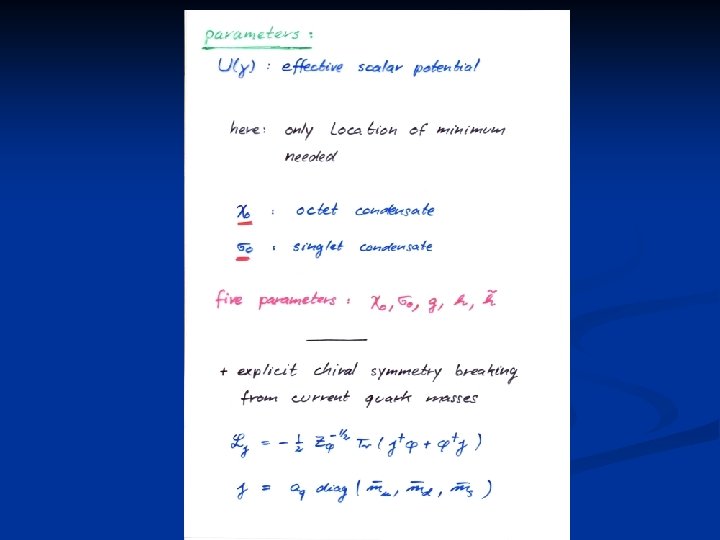 parameters :
U(γ) : effective scalar potential
here: only Location of minimum
needed
χ₀ : octet condensate
σ₀ : singlet condensate
five parameters : χ₀, σ₀, g, h, h̃
+ explicit chiral symmetry breaking
from current quark masses
ℒⱼ = - 1/2 Z_φ^{-1/2} Tr ( j†φ + φ†j )
j = a_q diag ( m̄_u, m̄_d, m̄_s )